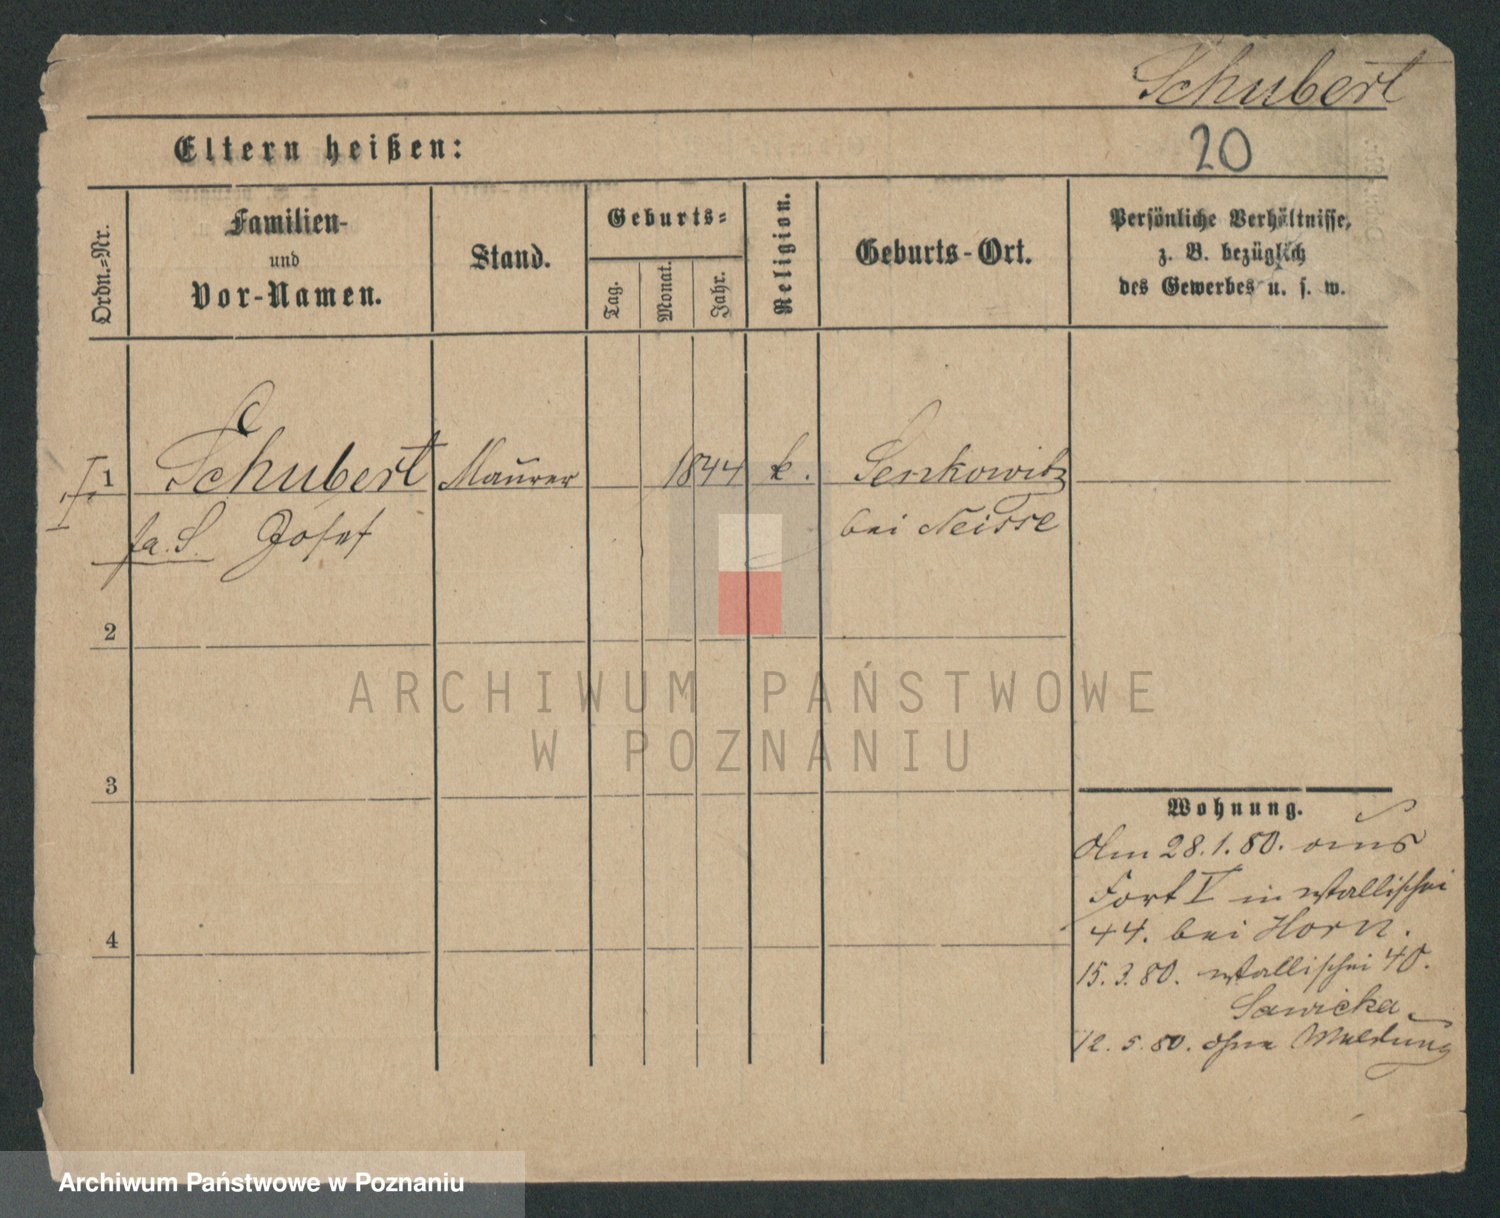 Schubert
Eltern heißen:
20
Ordn.=Nr.
Familien-
und
Vor-Namen.
Stand.
Geburts=
Tag.
Monat.
Jahr.
Religion.
Geburts-Ort.
Persönliche Verhältnisse,
z. B. bezüglich
des Gewerbes u. s. w.
1 Schubert Maurer 1844 k. Senkowitz
fa. S. Josef bei Neisse
2
3
4
Wohnung.
Am 28.1.80. aus
Fort V in Wallischei
44. bei Horn.
15.3.80. Wallischei 40.
Sawicka
12.5.80. ohne Meldung
ARCHIWUM PAŃSTWOWE
W POZNANIU
Archiwum Państwowe w Poznaniu